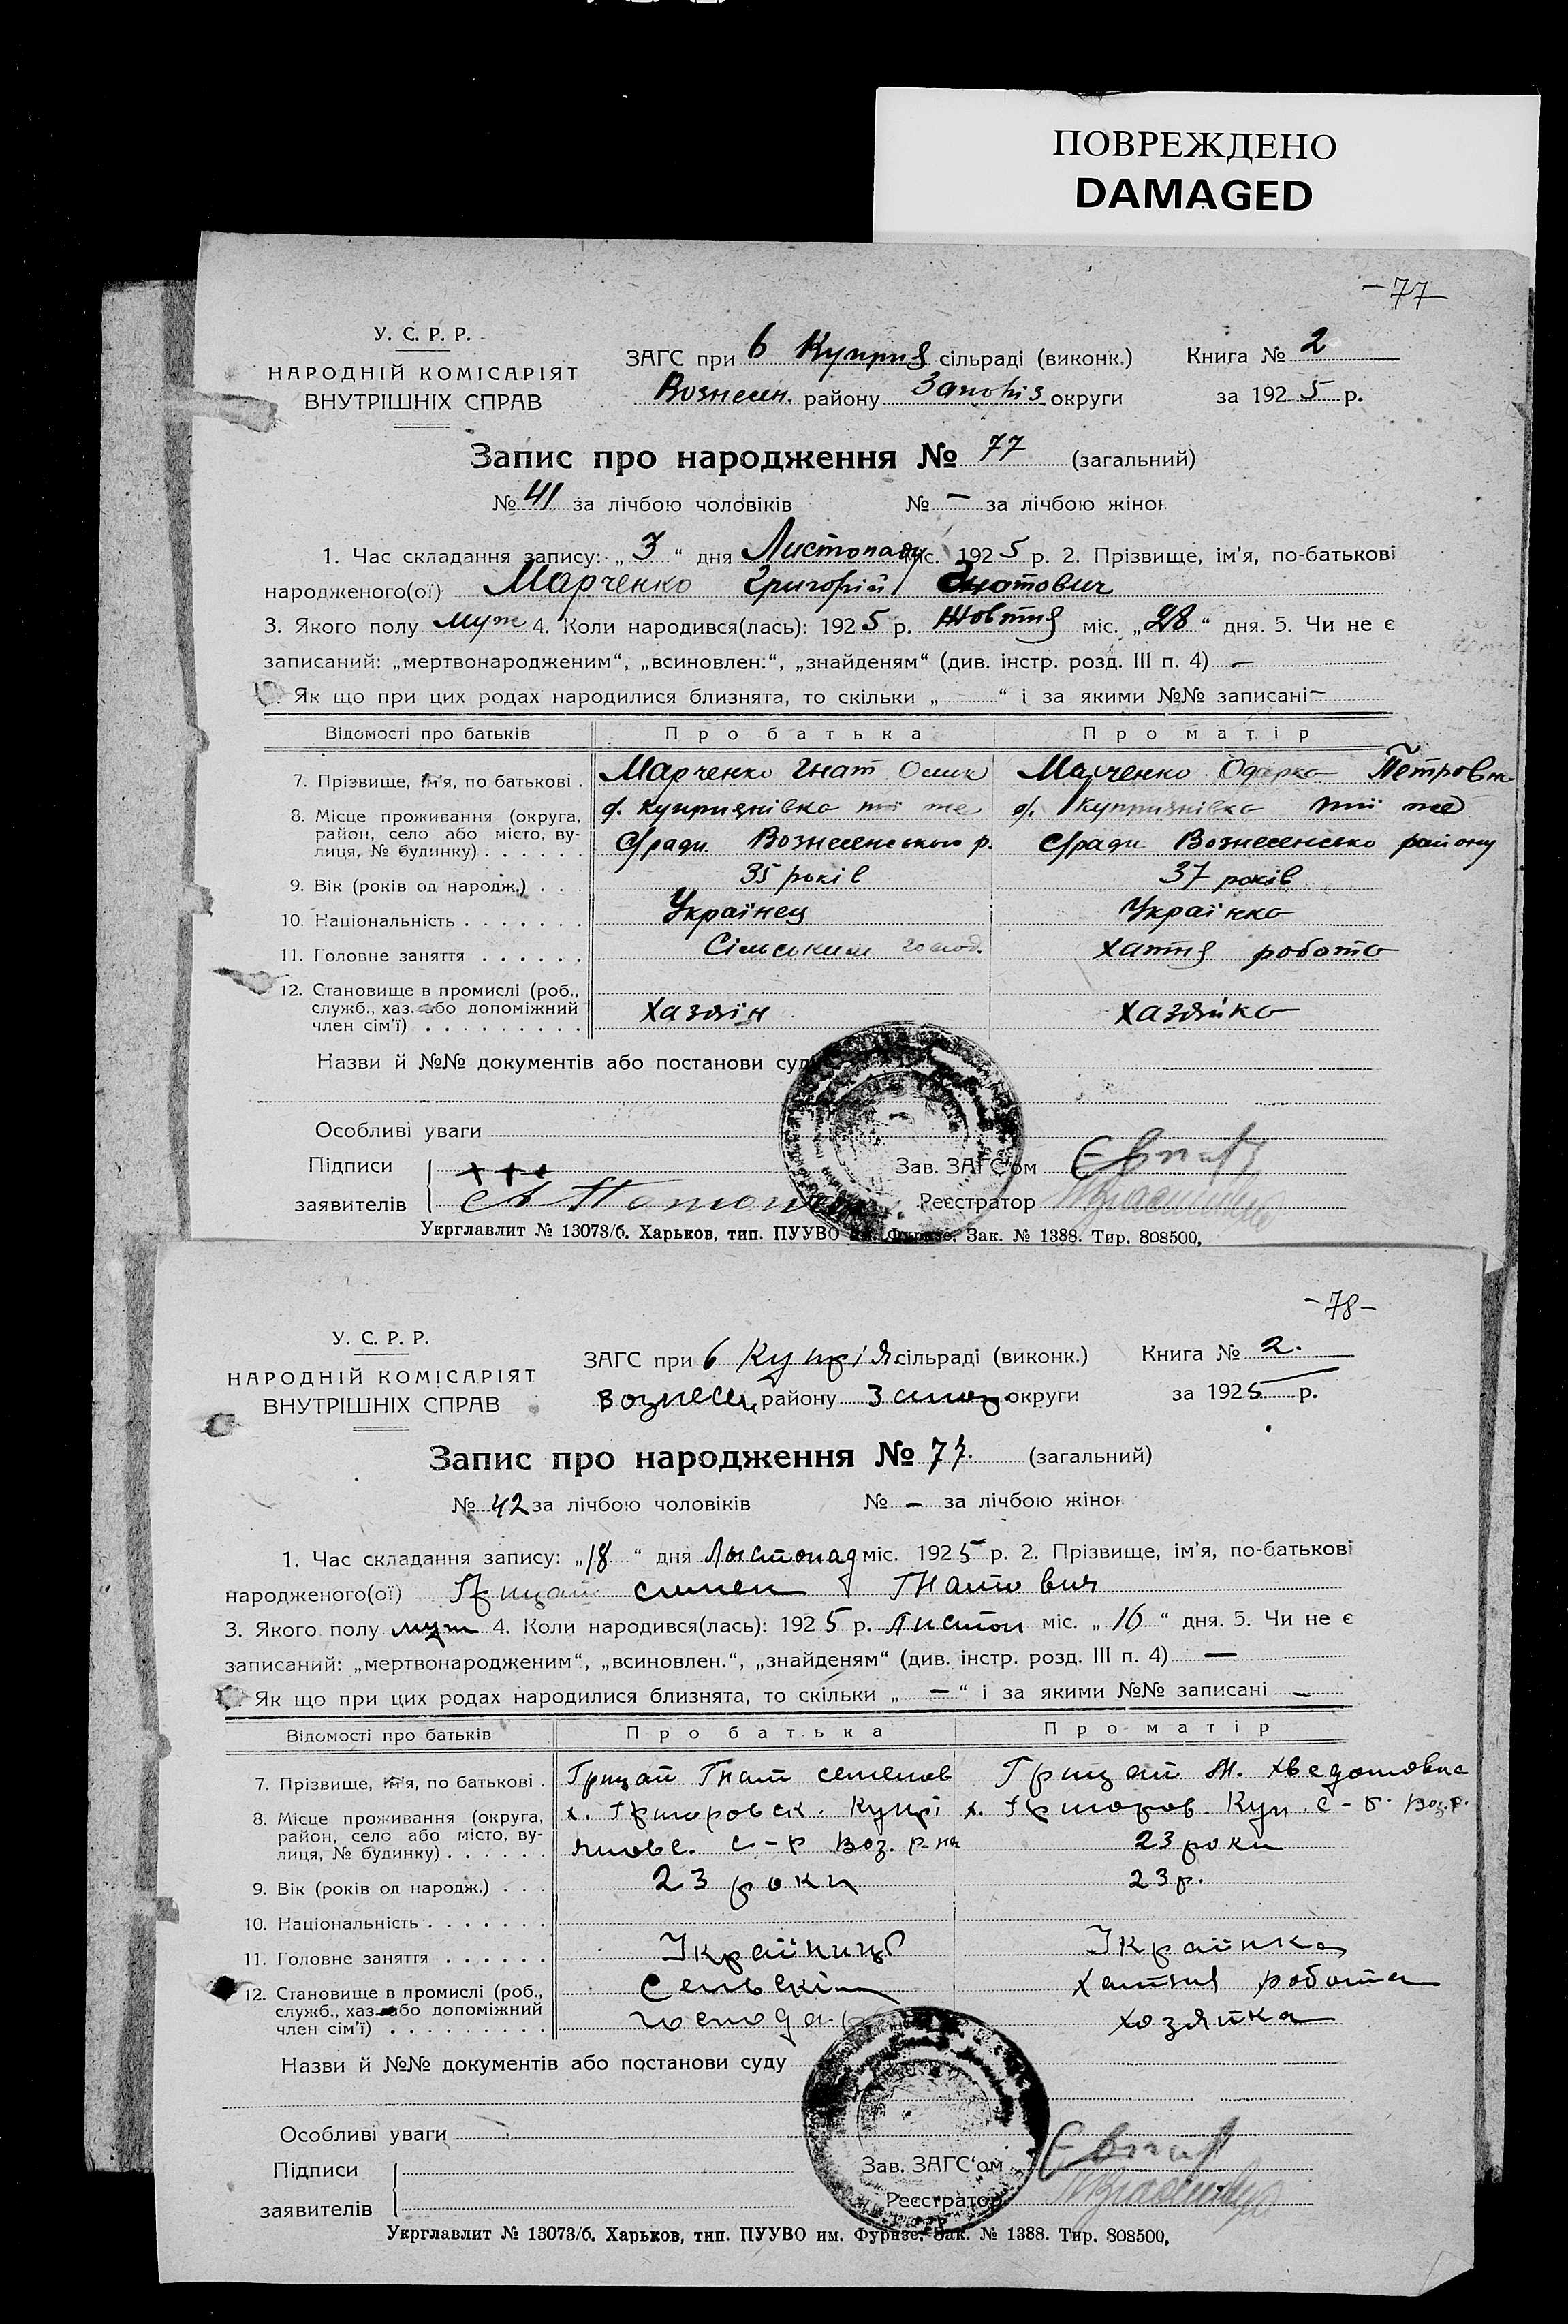 ПОВРЕЖДЕНО
DAMAGED
-77-
У. С. Р. Р.
НАРОДНІЙ КОМІСАРІЯТ
ВНУТРІШНІХ СПРАВ
ЗАГС при 6 Куприя сільраді (виконк.)
Вознесен. району Запоріз округи
Книга № 2
за 1925 р.
Запис про народження № 77 (загальний)
№ 41 за лічбою чоловіків № — за лічбою жінок
1. Час складання запису: „3“ дня Листопаду міс. 1925 р. 2. Прізвище, ім’я, по-батькові
народженого(ої) Марченко Григорій Гнатович
3. Якого полу муж 4. Коли народився(лась): 1925 р. Жовтня міс. „28“ дня. 5. Чи не є
записаний: „мертвонародженим“, „всиновлен.“, „знайденям“ (див. інстр. розд. III п. 4) —
Як що при цих родах народилися близнята, то скільки „ “ і за якими №№ записані —
Відомості про батьків Про батька Про матір
7. Прізвище, ім’я, по батькові . Марченко Гнат Марченко Одарка Петровна
8. Місце проживання (округа, район, село або місто, вулиця, № будинку) . . . . . .
с. Куприянівка тії же с. Куприянівка тії же
с/ради Вознесенського р. с/ради Вознесенсько району
9. Вік (років од народж.) . . . 35 років 37 років
10. Національність . . . . . . . Українец Українка
11. Головне заняття . . . . . . Сільським господ. хатня робота
12. Становище в промислі (роб., служб., хаз. або допоміжний член сім’ї) . . . . . . . . .
хазяїн хазяйка
Назви й №№ документів або постанови суду
Особливі уваги
Підписи +++
заявителів
Зав. ЗАГС‘ом
Реєстратор
Укрглавлит № 13073/б. Харьков, тип. ПУУВО им. Фрунзе. Зак. № 1388. Тир. 808500,
-78-
У. С. Р. Р.
НАРОДНІЙ КОМІСАРІЯТ
ВНУТРІШНІХ СПРАВ
ЗАГС при 6 Купрія. сільраді (виконк.)
Вознесен району Запоз округи
Книга № 2.
за 1925 р.
Запис про народження № 77. (загальний)
№ 42 за лічбою чоловіків № — за лічбою жінок
1. Час складання запису: „18“ дня Лыстопад міс. 1925 р. 2. Прізвище, ім’я, по-батькові
народженого(ої) Грицай Гнатович
3. Якого полу муж 4. Коли народився(лась): 1925 р. Листоп міс. „16“ дня. 5. Чи не є
записаний: „мертвонародженим“, „всиновлен.“, „знайденям“ (див. інстр. розд. III п. 4) —
Як що при цих родах народилися близнята, то скільки „ — “ і за якими №№ записані —
Відомості про батьків Про батька Про матір
7. Прізвище, ім’я, по батькові . Грицай Гнат семенов Грицай М. Хведотовна
8. Місце проживання (округа, район, село або місто, вулиця, № будинку) . . . . . .
х. Григоровск. Купрі х. Григоров. Куп. с-р. Воз.р.
яновс. с-р Воз. р-на 23 роки
9. Вік (років од народж.) . . . 23 роки 23 р.
10. Національність . . . . . . .
11. Головне заняття . . . . . . Україниць Українка
12. Становище в промислі (роб., служб., хаз. або допоміжний член сім’ї) . . . . . . . . .
Сельскім хатня робота
господа. хозяйка
Назви й №№ документів або постанови суду
Особливі уваги
Підписи
заявителів
Зав. ЗАГС‘ом
Реєстратор
Укрглавлит № 13073/б. Харьков, тип. ПУУВО им. Фрунзе. Зак. № 1388. Тир. 808500,